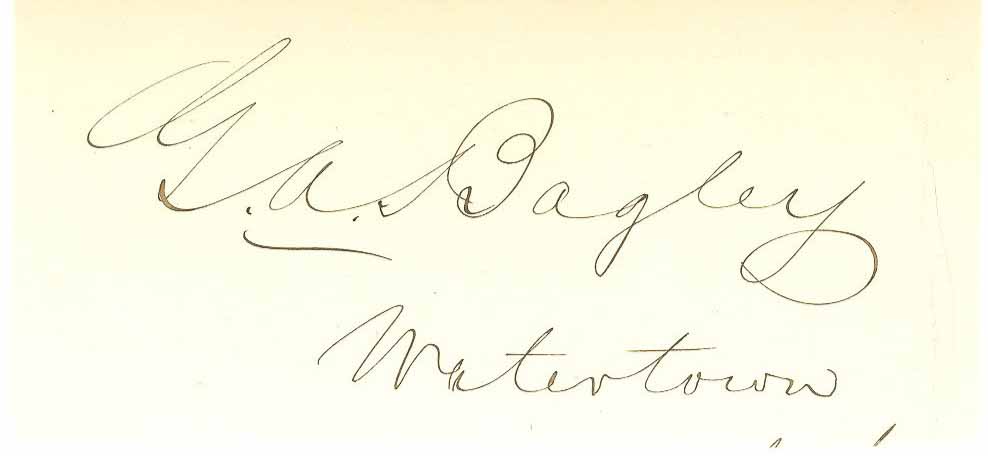 G. A. Bagley
Watertown